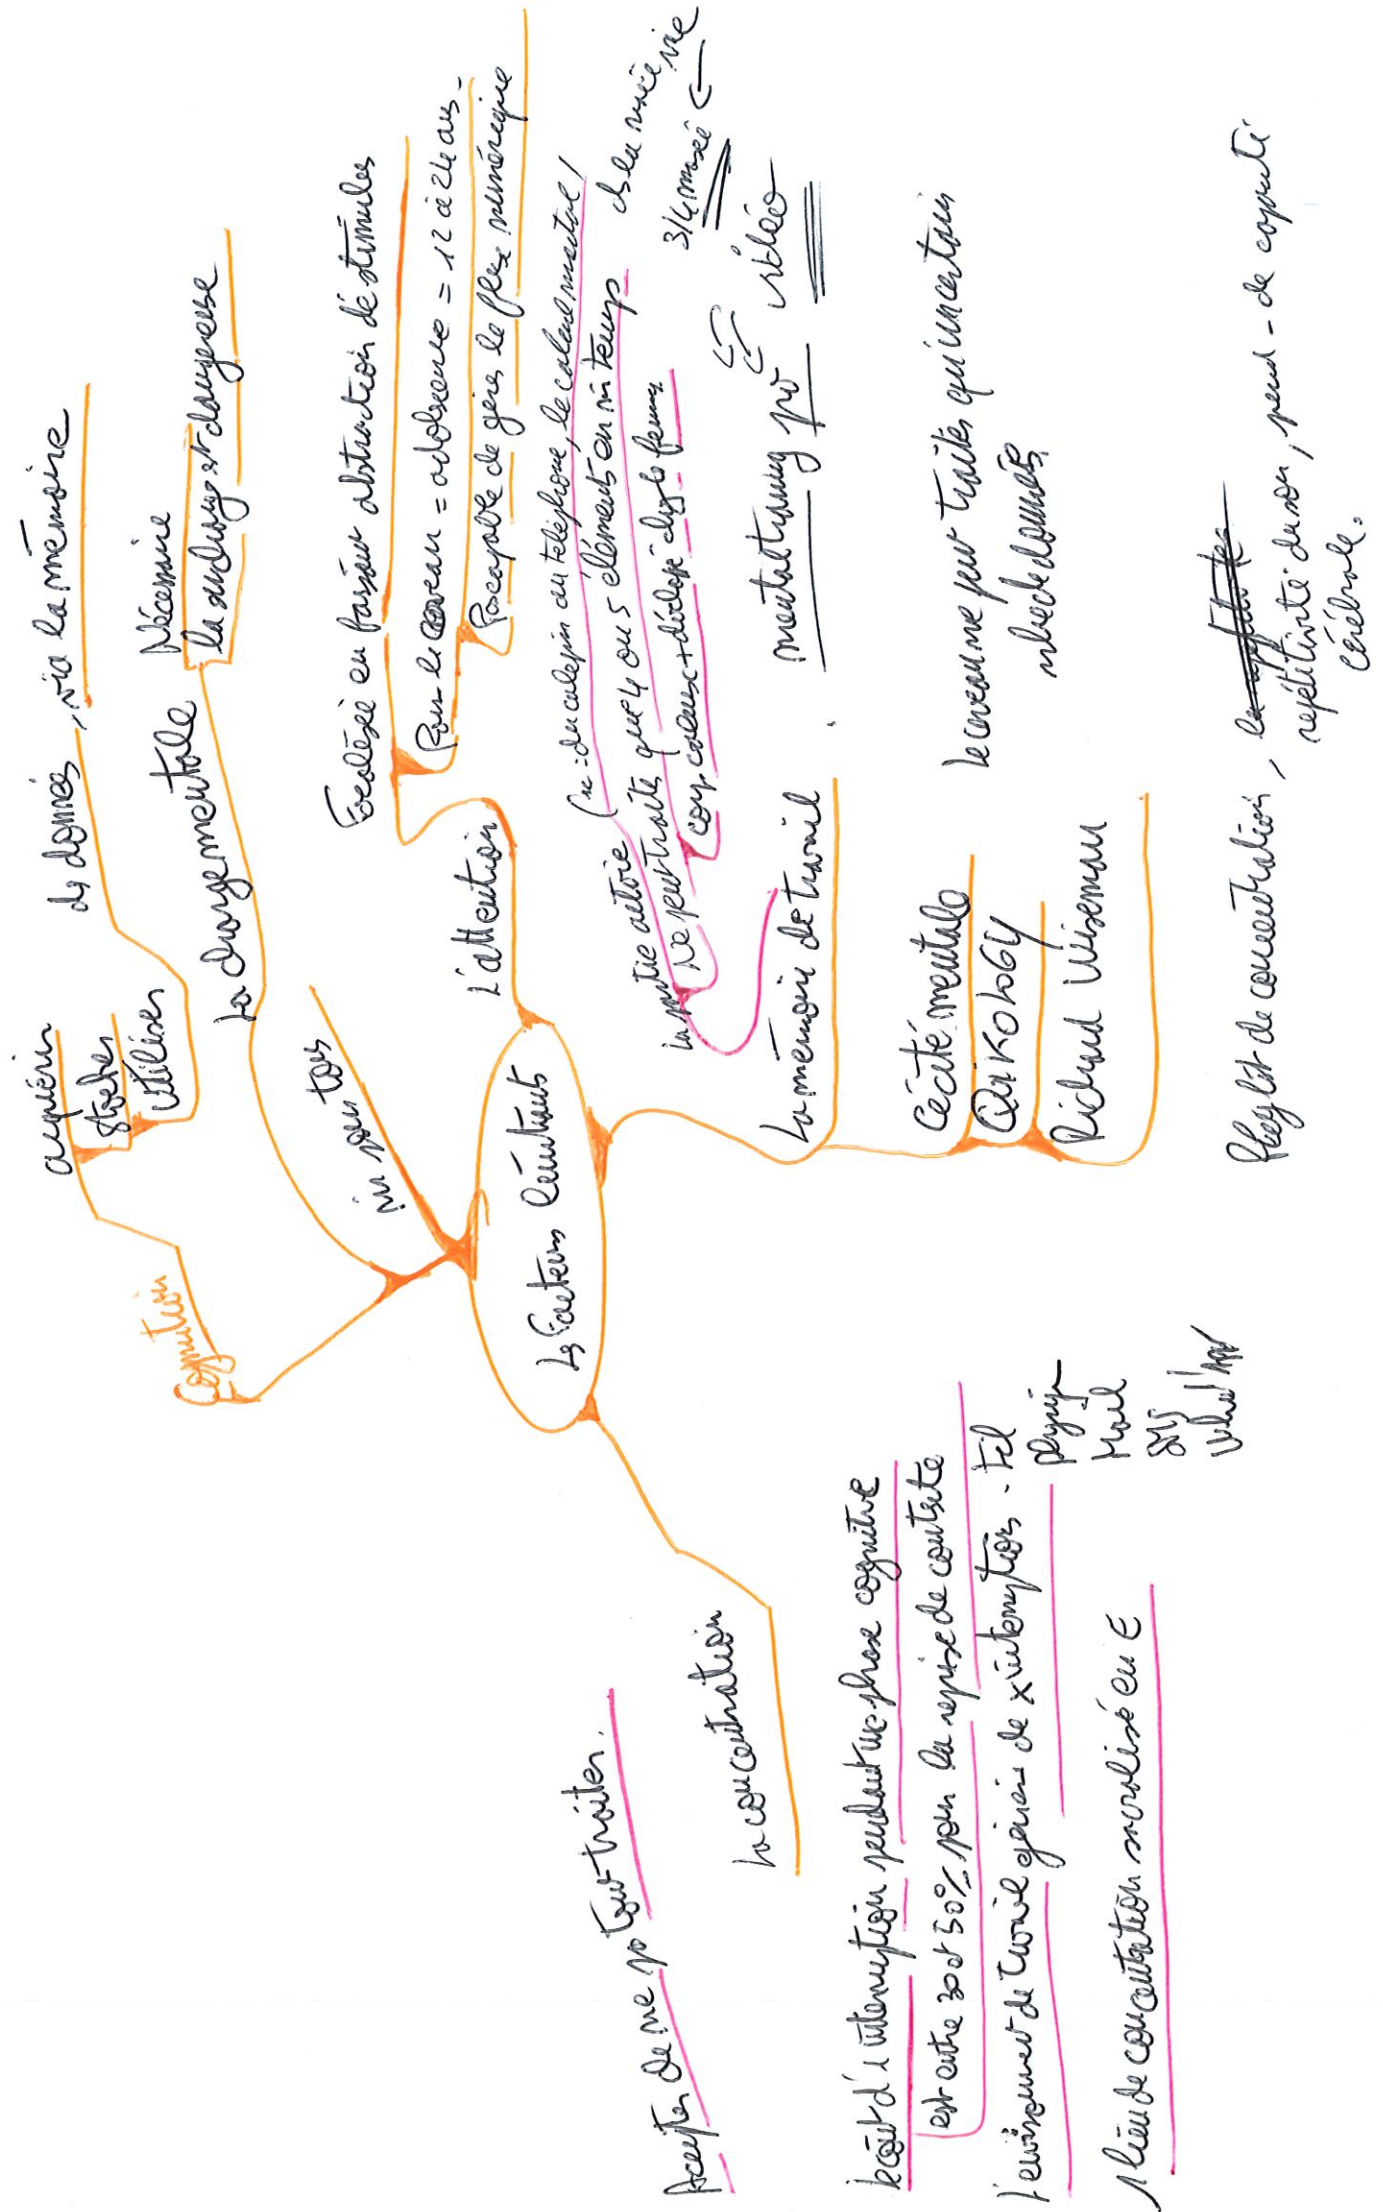 Les facteurs limitants
Cognition
acquérir
stocker
utiliser
ds données, via la mémoire
La charge mentale
Nécessaire
la surcharge est dangereuse
idem pour tous
L'attention
Focalisée en faisant abstraction de stimules
Pour le cerveau = adolescence = 12 à 24 ans -
Incapable de gérer le flux numérique
La mémoire de travail
La partie active
(ne = du calepin du téléphone, le calcul mental)
Ne peut traiter que 4 ou 5 éléments en m temps
corps calleux + développé chez les femmes
ds la vraie vie
3/4 masqué ←
mentaltraining pro
vidéo
Cécité mentale
QUIKOLOGY
Richard Wiseman
le cerveau ne peut traiter qu'un certain
nbre de données
Flag lié de concentration,
répétitivité du son, perd - de capacité
cérébrale.
La concentration
Accepter de ne po tout traiter.
le coût d'1 interruption pendant une phase cognitive
est entre 30 et 50% pour la reprise de contexte
l'environnement de travail génère de x interruptions - tel
physiq
Mail
SMS
What'App
1 lieu de concentration
en €